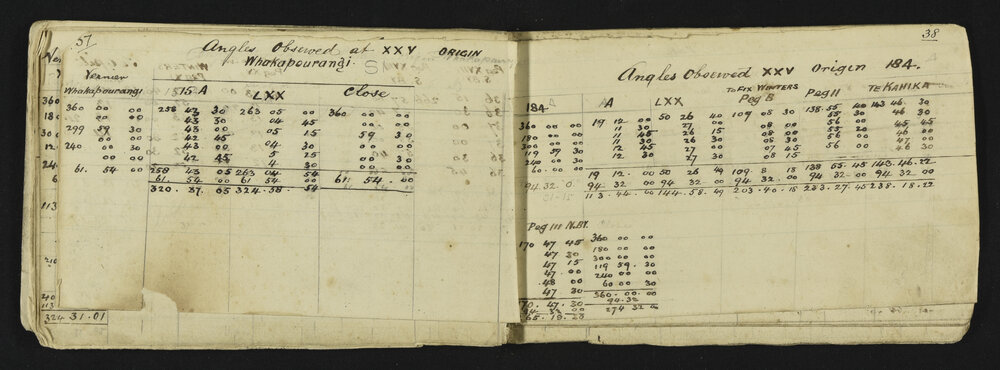 57
Angles Observed at XXV ORIGIN
Whakapourangi
Vernier
Whakapourangi 1515 A LXX Close
360 00 00 258 43 30 263 05 00 360 00 00
00 00 43 30 04 45
299 59 30 43 00 05 15 59 30
00 00 42 45 04 30
240 00 30 43 00 5 25 00 30
00 00 42 45 4 30 00 00
61. 54 00 258 43 05 263 04 54
61 54 00 61 54 00 61 54 00
320. 37. 05 324. 58. 54
360
180
300
24
6
113
210
240
113
324 31.01
38
Angles Observed XXV Origin 184.
184 A LXX To FIX WINTERS Peg B Peg II TE KAHIKA
360 00 00 19 12 00 50 26 40 109 08 30 138 55 40 143 46 30
180 00 00 11 30 27 00 08 00 55 30 46 30
300 00 00 11 45 26 15 08 00 56 00 45 45
119 59 30 11 30 26 30 08 30 55 20 46 00
240 00 30 12 45 27 00 07 45 56 00 47 00
60 00 00 12 30 27 30 08 15 46 00
19 12 00 50 26 49 109 8 18 138 55 45 143. 46. 22
94 32 0 94 32 00 94 32 00 94. 32. 00 94 32 00 94 32 00
113. 44 00 144. 58. 49 203. 40. 18 233. 27. 45 238. 18. 22
Peg III N.BY.
170 47 45 360 00 00
47 30 180 00 00
47 15 300 00 00
47 00 119 59. 30
48 00 240 00 00
47 30 60 00 30
170. 47. 30 360. 00. 00
94 32 00 94. 32
265. 19. 23 274 32 0